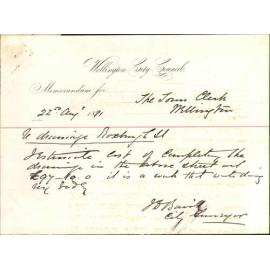 Wellington City Council
Memorandum for
The Town Clerk
22nd Augt 1891
Wellington
re drainage Roxburgh St
I Estimate cost of completing the
drainage in the above street at
£97.10.0 it is a work that wants doing
very badly
City Surveyor